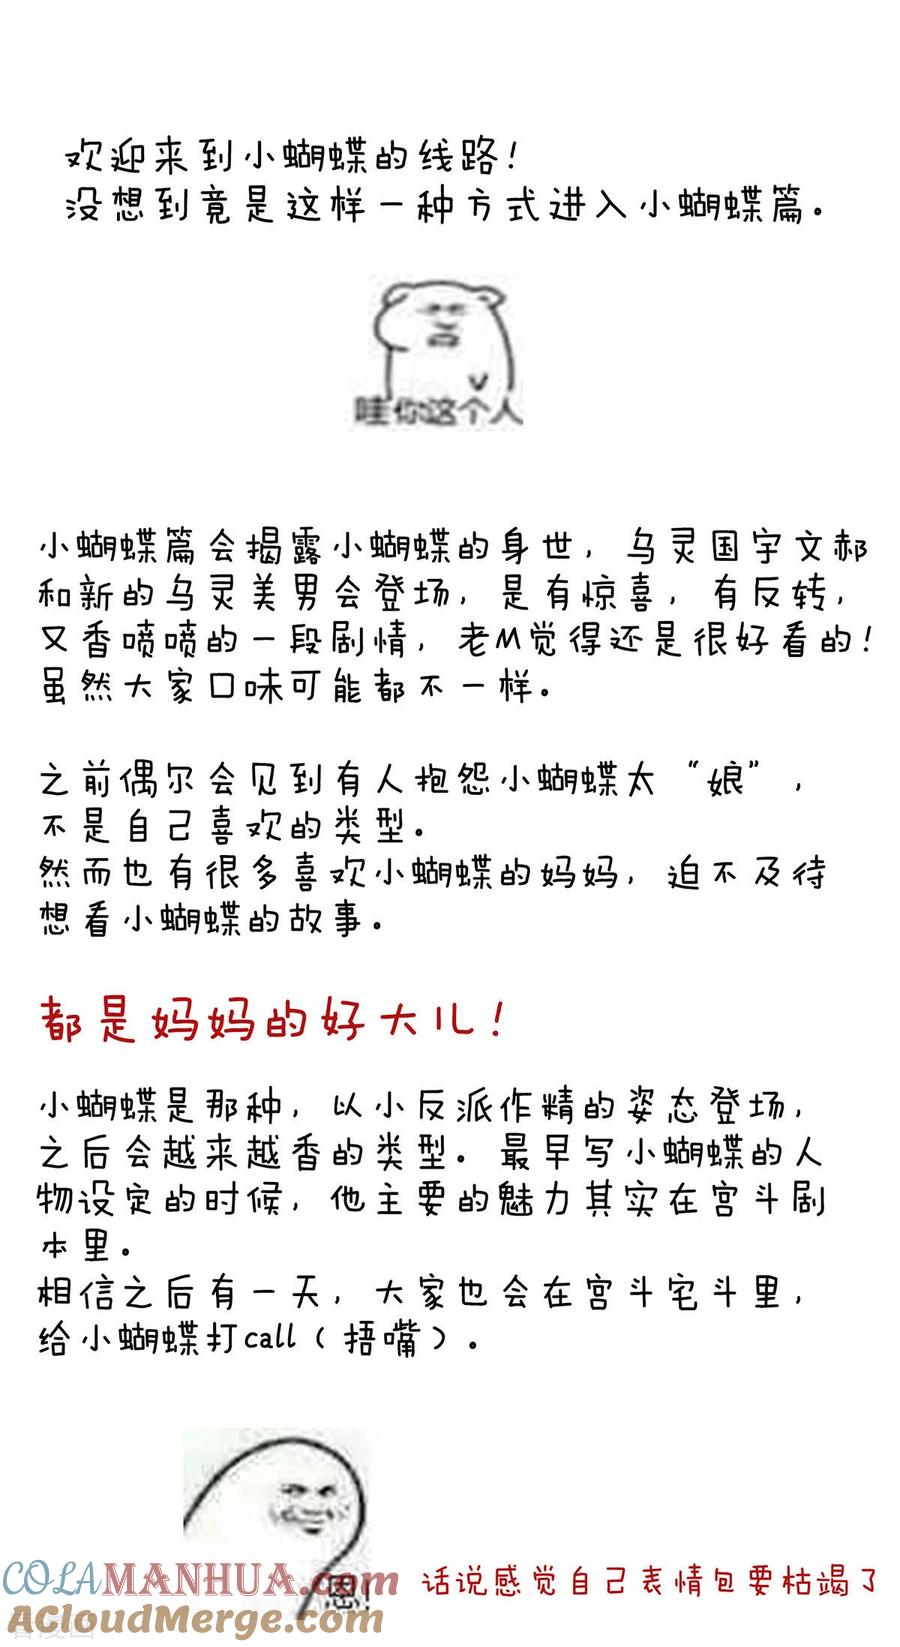 欢迎来到小蝴蝶的线路!
没想到竟是这样一种方式进入小蝴蝶篇。
哇你这个人
小蝴蝶篇会揭露小蝴蝶的身世，乌灵国宇文郝
和新的乌灵美男会登场，是有惊喜，有反转，
又香喷喷的一段剧情，老M觉得还是很好看的!
虽然大家口味可能都不一样。
之前偶尔会见到有人抱怨小蝴蝶太“娘”，
不是自己喜欢的类型。
然而也有很多喜欢小蝴蝶的妈妈，迫不及待
想看小蝴蝶的故事。
都是妈妈的好大儿!
小蝴蝶是那种，以小反派作精的姿态登场，
之后会越来越香的类型。最早写小蝴蝶的人
物设定的时候，他主要的魅力其实在宫斗剧
本里。
相信之后有一天，大家也会在宫斗宅斗里，
给小蝴蝶打call（捂嘴）。
恩!
话说感觉自己表情包要枯竭了
COLAMANHUA.com
ACloudMerge.com